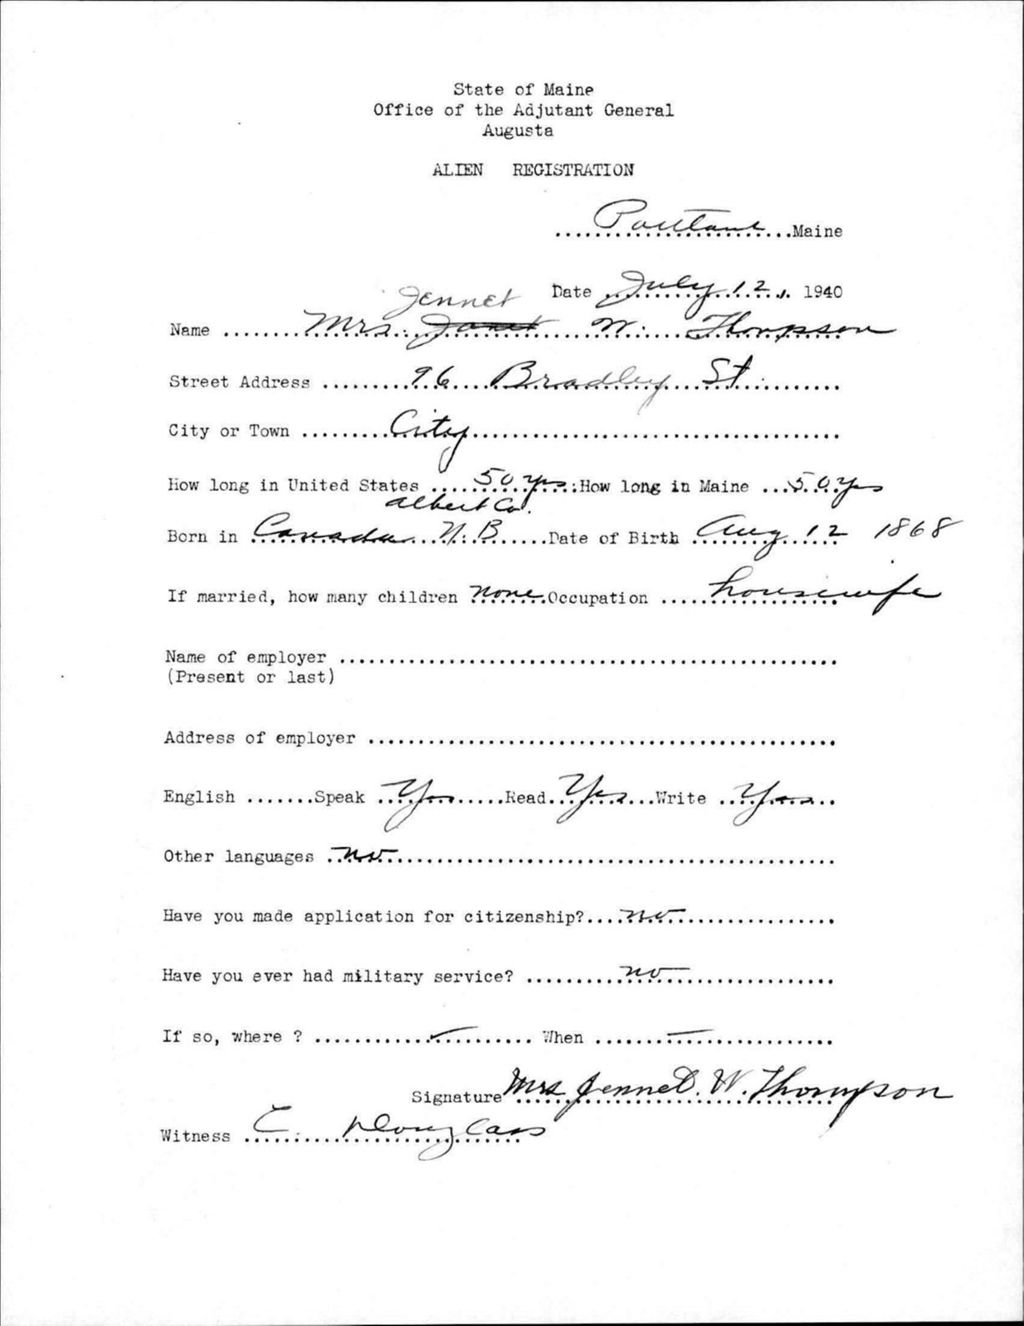 State of Maine
Office of the Adjutant General
Augusta
ALIEN REGISTRATION
....Portland....Maine
Date July 12, 1940
Jennet
Name ........Mrs. Janet W. Thompson
Street Address .........96 Bradley St.........
City or Town .........City.........
How long in United States ....50 yrs.:How long in Maine ...50 yrs
Albert Co.
Born in Canada N.B......Date of Birth Aug 12 1868
If married, how many children None.Occupation .....housewife
Name of employer .........
(Present or last)
Address of employer .........
English .......Speak ..Yes......Read..Yes...Write ..Yes..
Other languages ..no.........
Have you made application for citizenship?....no.........
Have you ever had military service? ........no.........
If so, where ? ......... When .........
Signature Mrs Jennet. W. Thompson
Witness C. Douglass